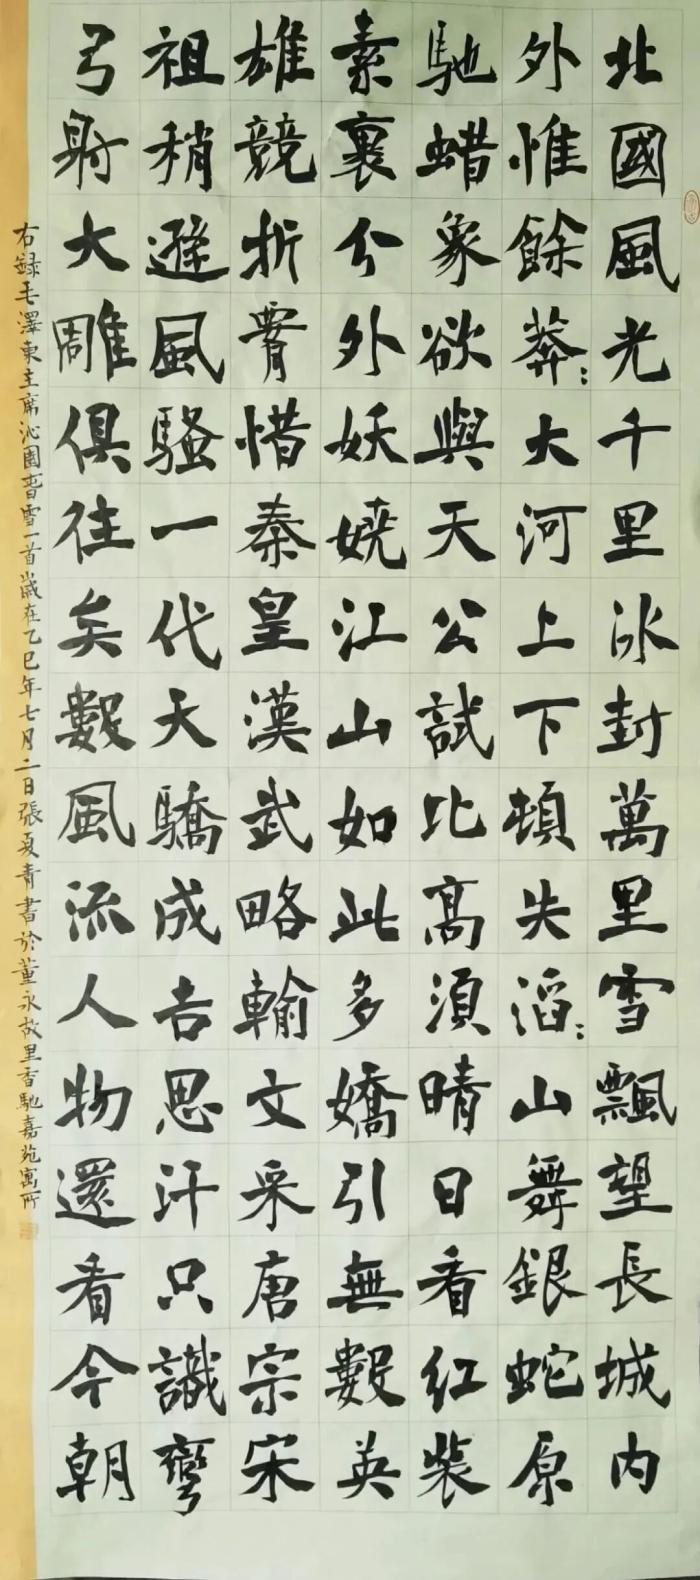 北國風光千里冰封萬里雪飄望長城內
外惟餘莽：大河上下頓失滔：山舞銀蛇原
馳蜡象欲與天公試比高須晴日看紅裝
素裹分外妖嬈江山如此多嬌引無數英
雄競折腰惜秦皇漢武略輸文采唐宗宋
祖稍遜風騷一代天驕成吉思汗只識彎
弓射大雕俱往矣數風流人物還看今朝
右録毛澤東主席沁園春雪一首歲在乙巳年七月二日張夏青書於董永故里香馳嘉苑寓所